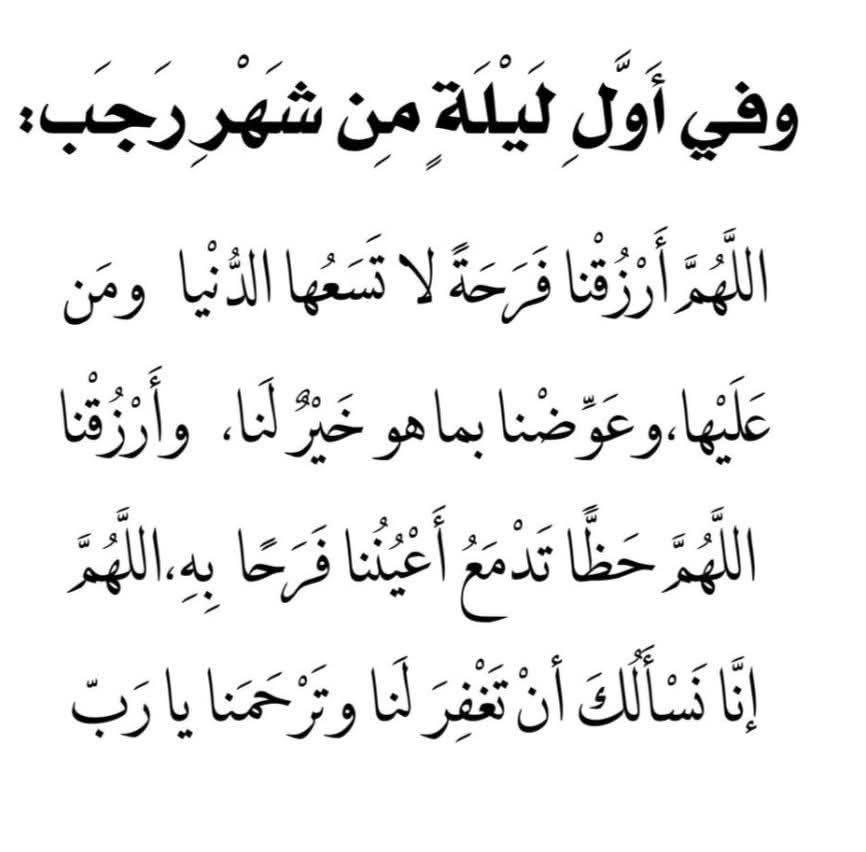 وفي أَوَّلِ لَيْلَةٍ مِن شَهْرِ رَجَب:
اللَّهُمَّ أَرْزُقْنا فَرَحَةً لا تَسَعُها الدُّنْيا ومَن
عَلَيْها،وعَوِّضْنا بما هو خَيْرٌ لَنا، وأَرْزُقْنا
اللَّهُمَّ حَظًّا تَدْمَعُ أَعْيُنُنا فَرَحًا بِهِ،اللَّهُمَّ
إنَّا نَسْأَلُكَ أنْ تَغْفِرَ لَنا وتَرْحَمَنا يا رَبّ